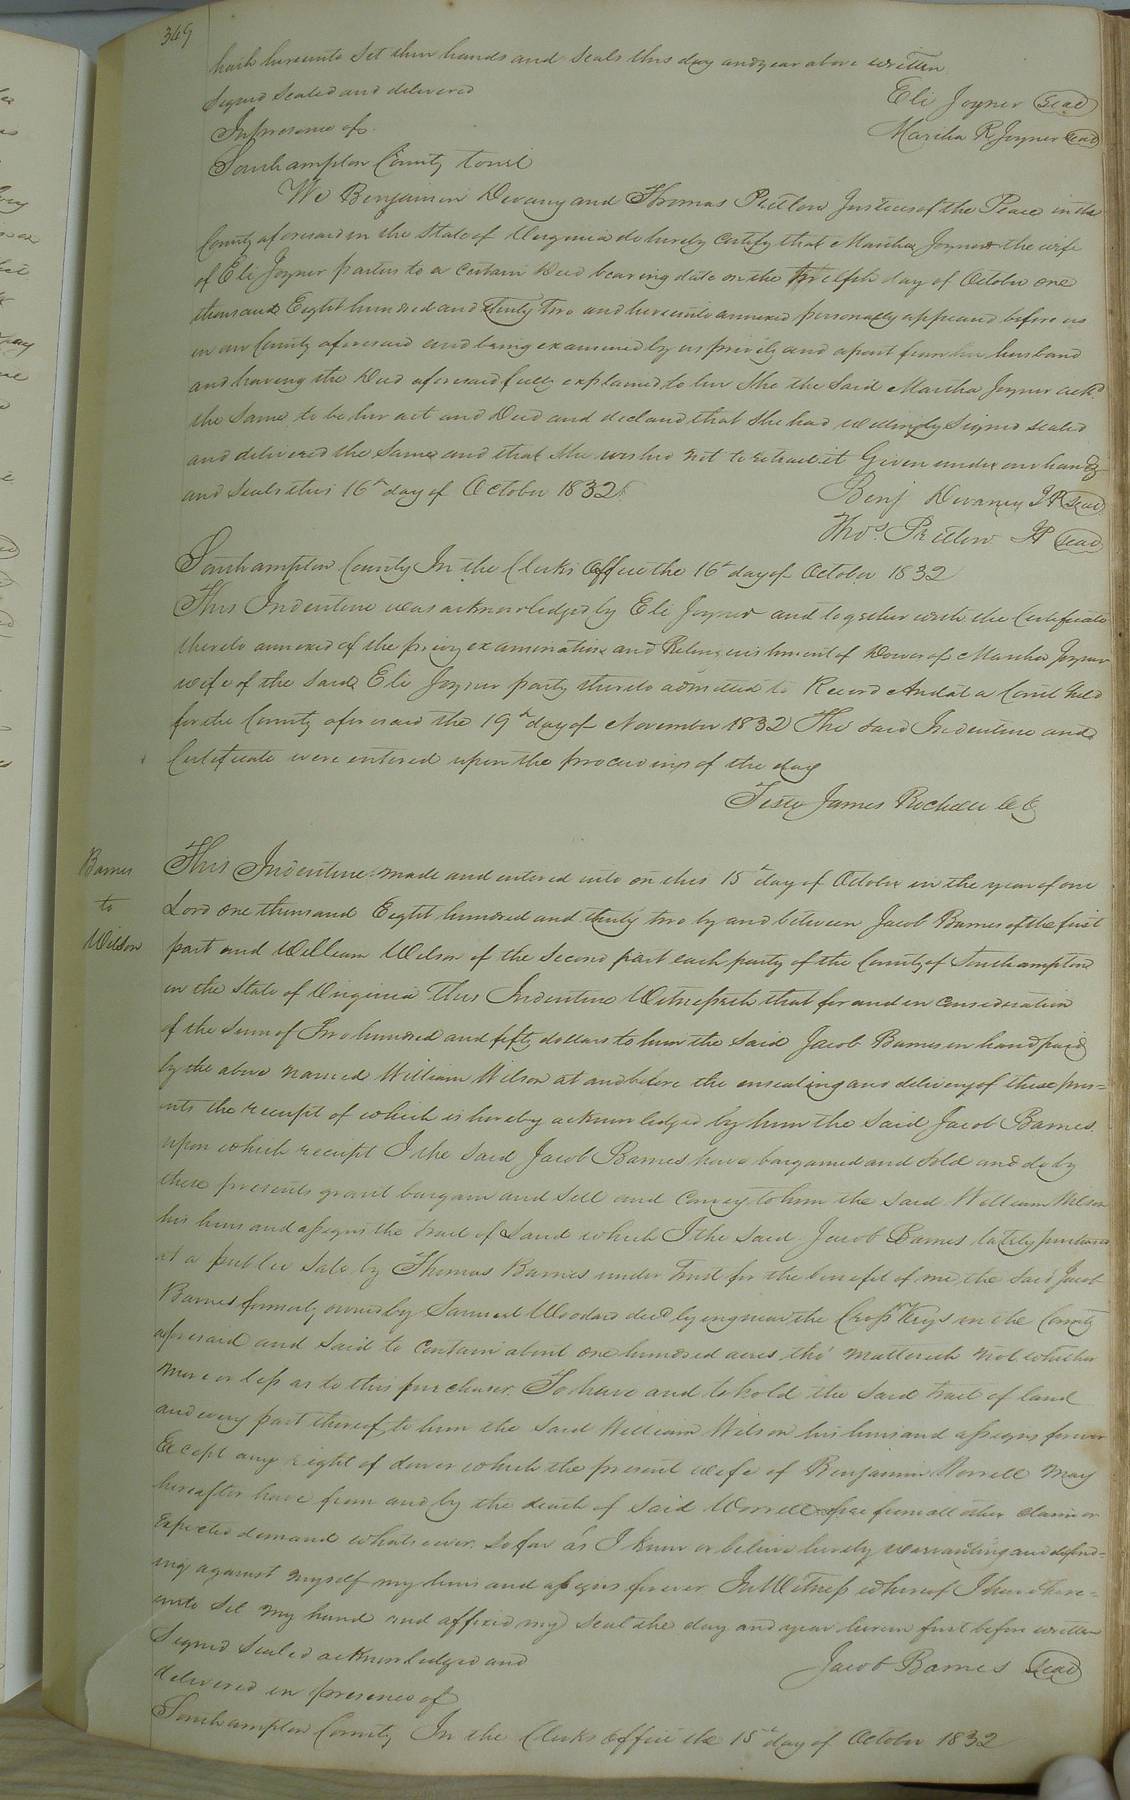 349
hath hereunto set their hands and seals this day and year above written
Signed Sealed and delivered
Eli Joyner Seal
In presence of
Martha R Joyner Seal
Southampton County towit
We Benjamin Devany and Thomas Pretlow Justices of the Peace in the
County aforesaid in the State of Virginia do hereby certify that Martha Joyner the wife
of Eli Joyner parties to a certain Deed bearing date on the twelfth day of October one
thousand Eight hundred and thirty two and hereunto annexed personally appeared before us
in our County aforesaid and being examined by us privily and apart from her husband
and having the Deed aforesaid fully explained to her She the Said Martha Joyner ackd
the Same to be her act and Deed and declared that She had willingly Signed sealed
and delivered the Same and that She wished not to retract it Given under our hands
and Seals this 16th day of October 1832
Benj Devaney JP Seal
Thos. Pretlow JP Seal
Southampton County In the Clerks Office the 16th day of October 1832
This Indenture was acknowledged by Eli Joyner and together with the Certificate
thereto annexed of the privy examination and Relinquishment of Dower of Martha Joyner
wife of the Said Eli Joyner party thereto admitted to Record And at a Court held
for the County aforesaid the 19th day of November 1832 The Said Indenture and
Certificate were entered upon the proceedings of the day
Teste James Rochelle CC
Barnes
to
Wilson
This Indenture made and entered into on this 15th day of October in the year of our
Lord one thousand Eight hundred and thirty two by and between Jacob Barnes of the first
part and William Wilson of the Second part each party of the County of Southampton
in the State of Virginia This Indenture Witnesseth that for and in Consideration
of the Sum of Two hundred and fifty dollars to him the Said Jacob Barnes in hand paid
by the above named William Wilson at and before the ensealing and delivery of these pres=
ents the receipt of which is hereby acknowledged by him the Said Jacob Barnes.
upon which receipt I the Said Jacob Barnes have bargained and Sold and do by
these presents grant bargain and Sell and Convey to him the Said William Wilson
his heirs and assigns the tract of Land which I the Said Jacob Barnes lately purchased
at a public Sale by Thomas Barnes under Trust for the benefit of me, the Said Jacob
Barnes formerly owned by Samuel Woodard decd lying near the Cross Keys in the County
aforesaid and Said to Contain about one hundred acres tho' mattereth not whether
more or less as to this purchaser. To have and to hold the Said tract of land
and every part thereof to him the Said William Wilson his heirs and assigns forever
Except any right of dower which the present wife of Benjamin Worrell may
hereafter have from and by the death of Said Worrell free from all other claim or
Expected demand whatsoever. So far as I know or believe hereby warranting and defend=
ing against myself my heirs and assigns forever In Witness whereof I have here=
unto Set my hand and affixed my Seal the day and year herein first before written
Signed Sealed acknowledged and
Jacob Barnes Seal
delivered in presence of
Southampton County In the Clerks office the 15th day of October 1832